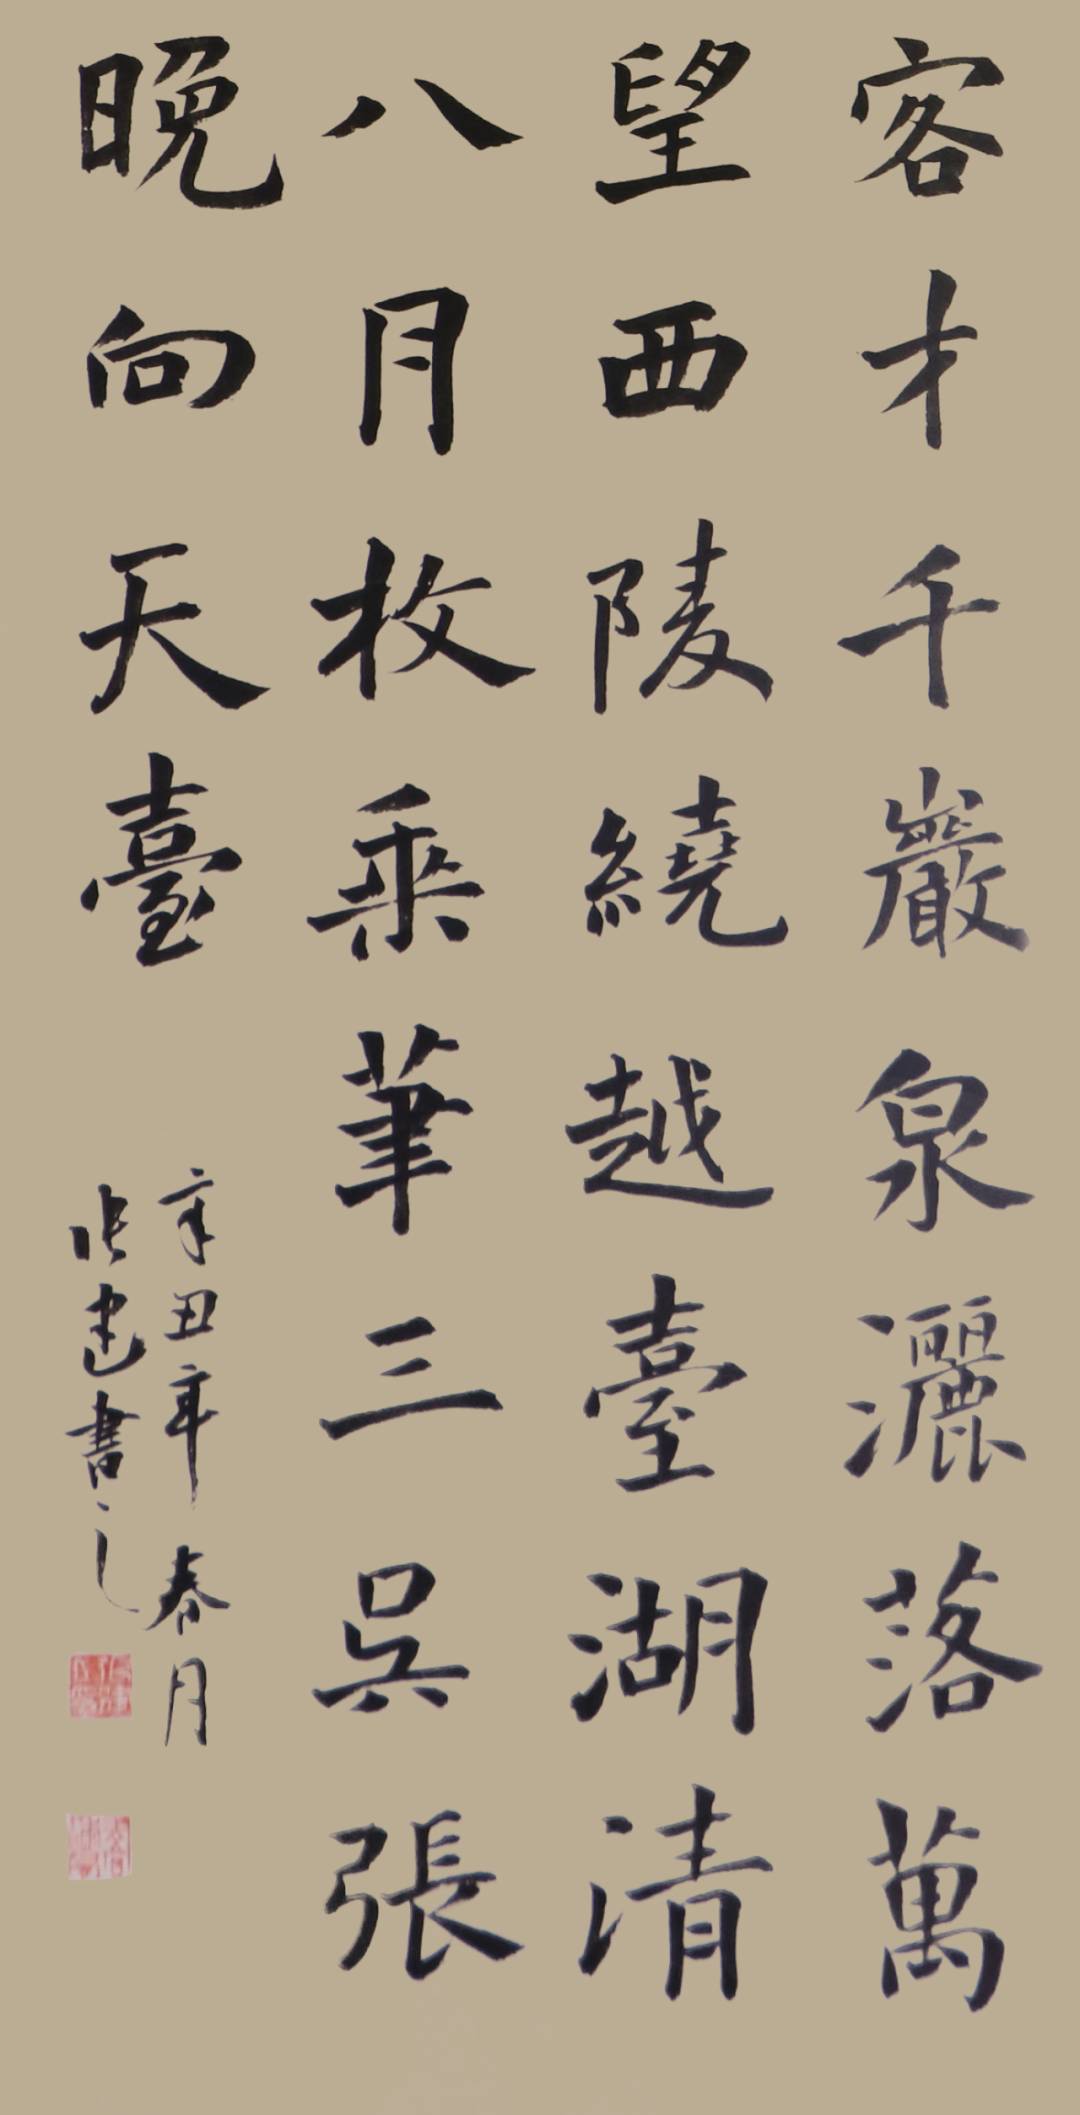 客才千巖泉灑落萬
望西陵繞越臺湖清
八月枚乘筆三吳張
晚向天臺
辛丑年春月
張建書之